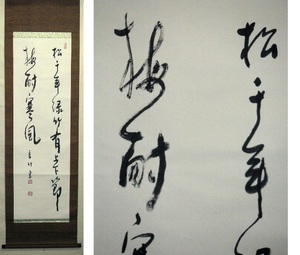 松千年緑竹有上下節
梅耐寒風
松千年
梅耐寒